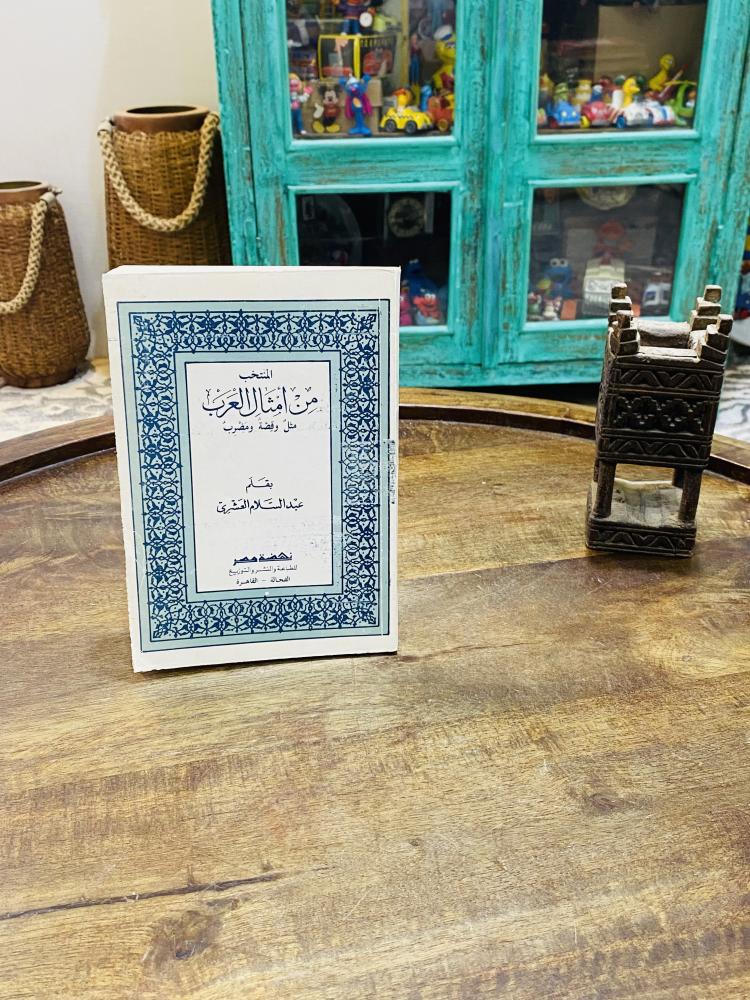 المنتخب
من أمثال العرب
مثل وقصة ومضرب
بقلم
عبد السلام العشري
نهضة مصر
للطباعة والنشر والتوزيع
الفجالة - القاهرة